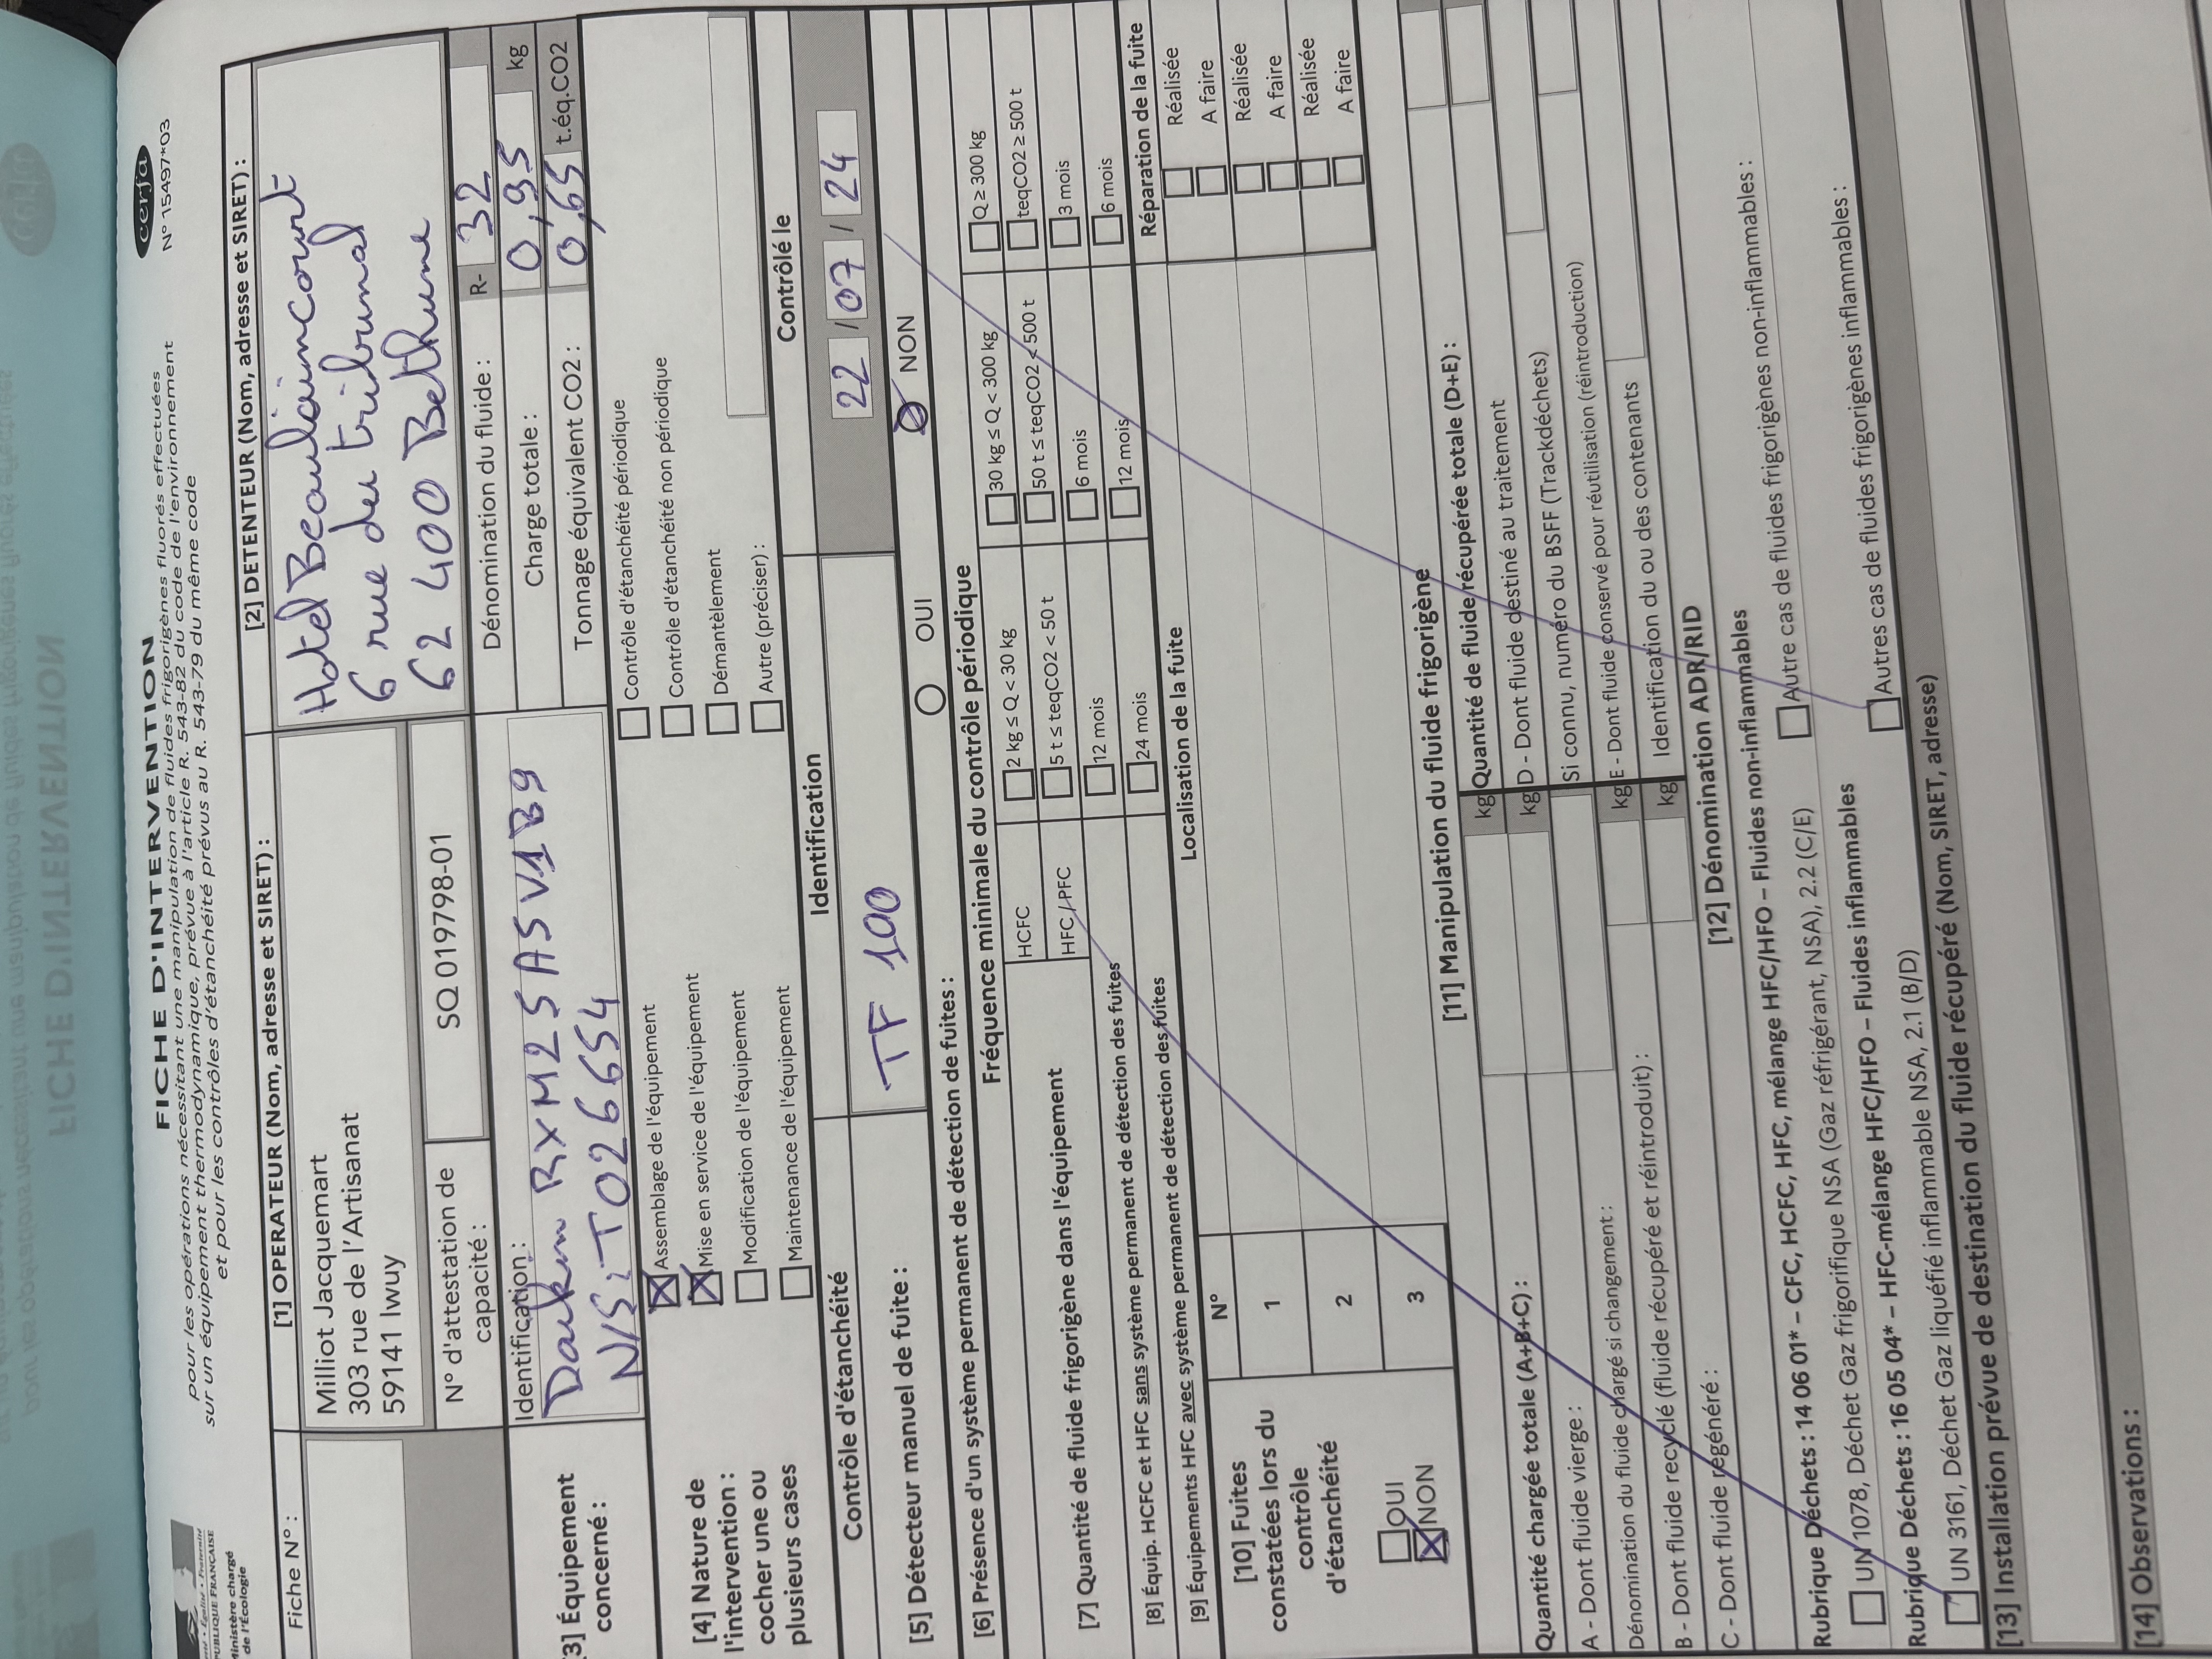 FICHE D'INTERVENTION
pour les opérations nécessitant une manipulation de fluides frigorigènes fluorés effectuées
sur un équipement thermodynamique, prévue à l'article R. 543-82 du code de l'environnement
et pour les contrôles d'étanchéité prévus au R. 543-79 du même code
cerfa
N° 15497*03
RÉPUBLIQUE FRANÇAISE
Ministère chargé
de l'Écologie
Fiche N° :
[1] OPERATEUR (Nom, adresse et SIRET) :
Milliot Jacquemart
303 rue de l'Artisanat
59141 Iwuy
N° d'attestation de capacité :
SQ 019798-01
[2] DETENTEUR (Nom, adresse et SIRET) :
Hotel Beaulaincourt
6 rue du tribunal
62 400 Bethune
[3] Équipement concerné :
Identification :
Daikin RXM25A5V1B9
N/S: T026654
Dénomination du fluide : R- 32
Charge totale : 0,95 kg
Tonnage équivalent CO2 : 0,65 t.éq.CO2
[4] Nature de
l'intervention :
cocher une ou
plusieurs cases
Assemblage de l'équipement
Mise en service de l'équipement
Modification de l'équipement
Maintenance de l'équipement
Contrôle d'étanchéité périodique
Contrôle d'étanchéité non périodique
Démantèlement
Autre (préciser) :
Contrôle d'étanchéité
Identification
Contrôlé le
[5] Détecteur manuel de fuite :
TF 100
22 / 07 / 24
[6] Présence d'un système permanent de détection de fuites : OUI NON
Fréquence minimale du contrôle périodique
[7] Quantité de fluide frigorigène dans l'équipement
HCFC 2 kg ≤ Q < 30 kg 30 kg ≤ Q < 300 kg Q ≥ 300 kg
HFC / PFC 5 t ≤ teqCO2 < 50 t 50 t ≤ teqCO2 < 500 t teqCO2 ≥ 500 t
[8] Équip. HCFC et HFC sans système permanent de détection des fuites 12 mois 6 mois 3 mois
[9] Équipements HFC avec système permanent de détection des fuites 24 mois 12 mois 6 mois
[10] Fuites
constatées lors du
contrôle
d'étanchéité
OUI
NON
N° Localisation de la fuite Réparation de la fuite
1 Réalisée
A faire
2 Réalisée
A faire
3 Réalisée
A faire
[11] Manipulation du fluide frigorigène
Quantité chargée totale (A+B+C) : kg
A - Dont fluide vierge : kg
Dénomination du fluide chargé si changement :
B - Dont fluide recyclé (fluide récupéré et réintroduit) : kg
C - Dont fluide régénéré : kg
Quantité de fluide récupérée totale (D+E) :
D - Dont fluide destiné au traitement
Si connu, numéro du BSFF (Trackdéchets)
E - Dont fluide conservé pour réutilisation (réintroduction)
Identification du ou des contenants
[12] Dénomination ADR/RID
Rubrique Déchets : 14 06 01* – CFC, HCFC, HFC, mélange HFC/HFO – Fluides non-inflammables
UN 1078, Déchet Gaz frigorifique NSA (Gaz réfrigérant, NSA), 2.2 (C/E)
Autre cas de fluides frigorigènes non-inflammables :
Rubrique Déchets : 16 05 04* – HFC-mélange HFC/HFO – Fluides inflammables
UN 3161, Déchet Gaz liquéfié inflammable NSA, 2.1 (B/D)
Autres cas de fluides frigorigènes inflammables :
[13] Installation prévue de destination du fluide récupéré (Nom, SIRET, adresse)
[14] Observations :